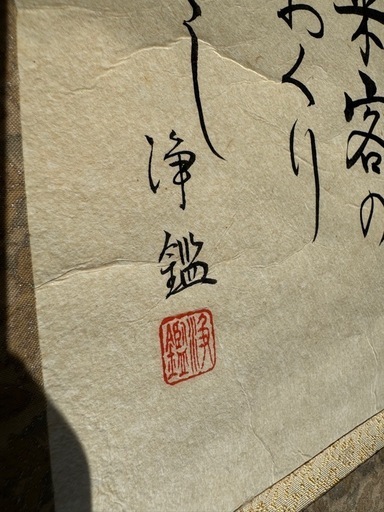 来客の
おくり
し
浄鑑
浄鑑